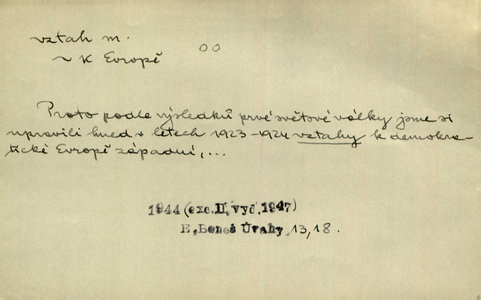 vztah m.
~ K Evropě
00
Proto podle výsledků prvé světové války jsme si
upravili hned v létech 1923-1924 vztahy k demokra-
tické Evropě západní,...
1944 (exc.II,vyd.1947)
E.Beneš Úvahy 13,18.